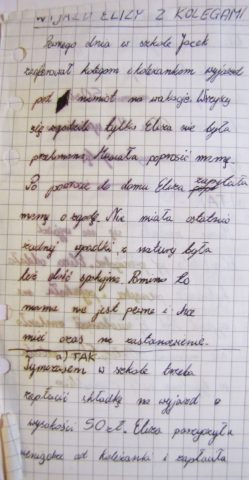 WYJAZD ELIZY Z KOLEGAMI
Pewnego dnia w szkole Jacek
zaoferował kolegom i koleżankom wyjazd
pod namiot na wakacje. Wszyscy
się zgodzili tylko Eliza nie była
przekonana. Musiała poprosić mamę.
Po powrocie do domu Eliza zapytała
mamy o zgodę. Nie miała ostatnio
żadnej wpadki i z natury była
też dość spokojna. Pomimo to
mama nie jest pewna i
czas na zastanowienie.
a) TAK
Tymczasem w szkole trzeba
zapłacić składkę na wyjazd o
wysokości 50 zł. Eliza pożyczyła
pieniądze od koleżanki i zapłaciła